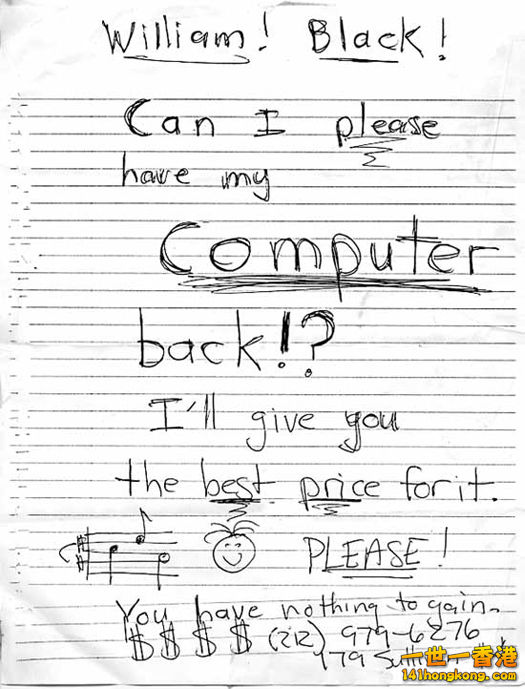 William! Black!
Can I please
have my
Computer
back!?
I'll give you
the best price for it.
PLEASE!
You have nothing to gain.
$ $ $ $ (212) 979-6276
179
一世一香港
141hongkong.com